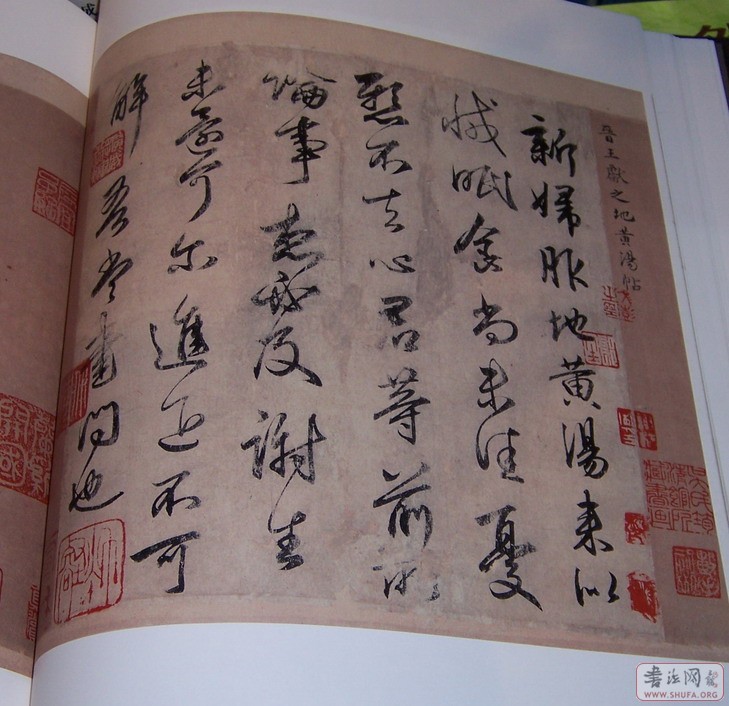 晋王獻之地黄湯帖
新婦服地黄湯来似
減眠食尚未佳憂
懸不去心君等前所
論事想必及謝生
未還可尔進退不可
解吾當書問也
書法网
WWW.SHUFA.ORG